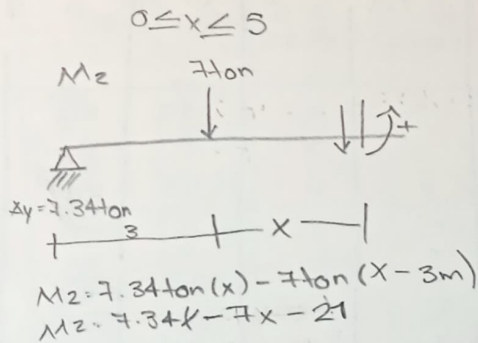 0≤x≤5
M2
7ton
+
Ay=7.34ton
3
x
M2=7.34ton(x)-7ton(x-3m)
M2=7.34x-7x-21